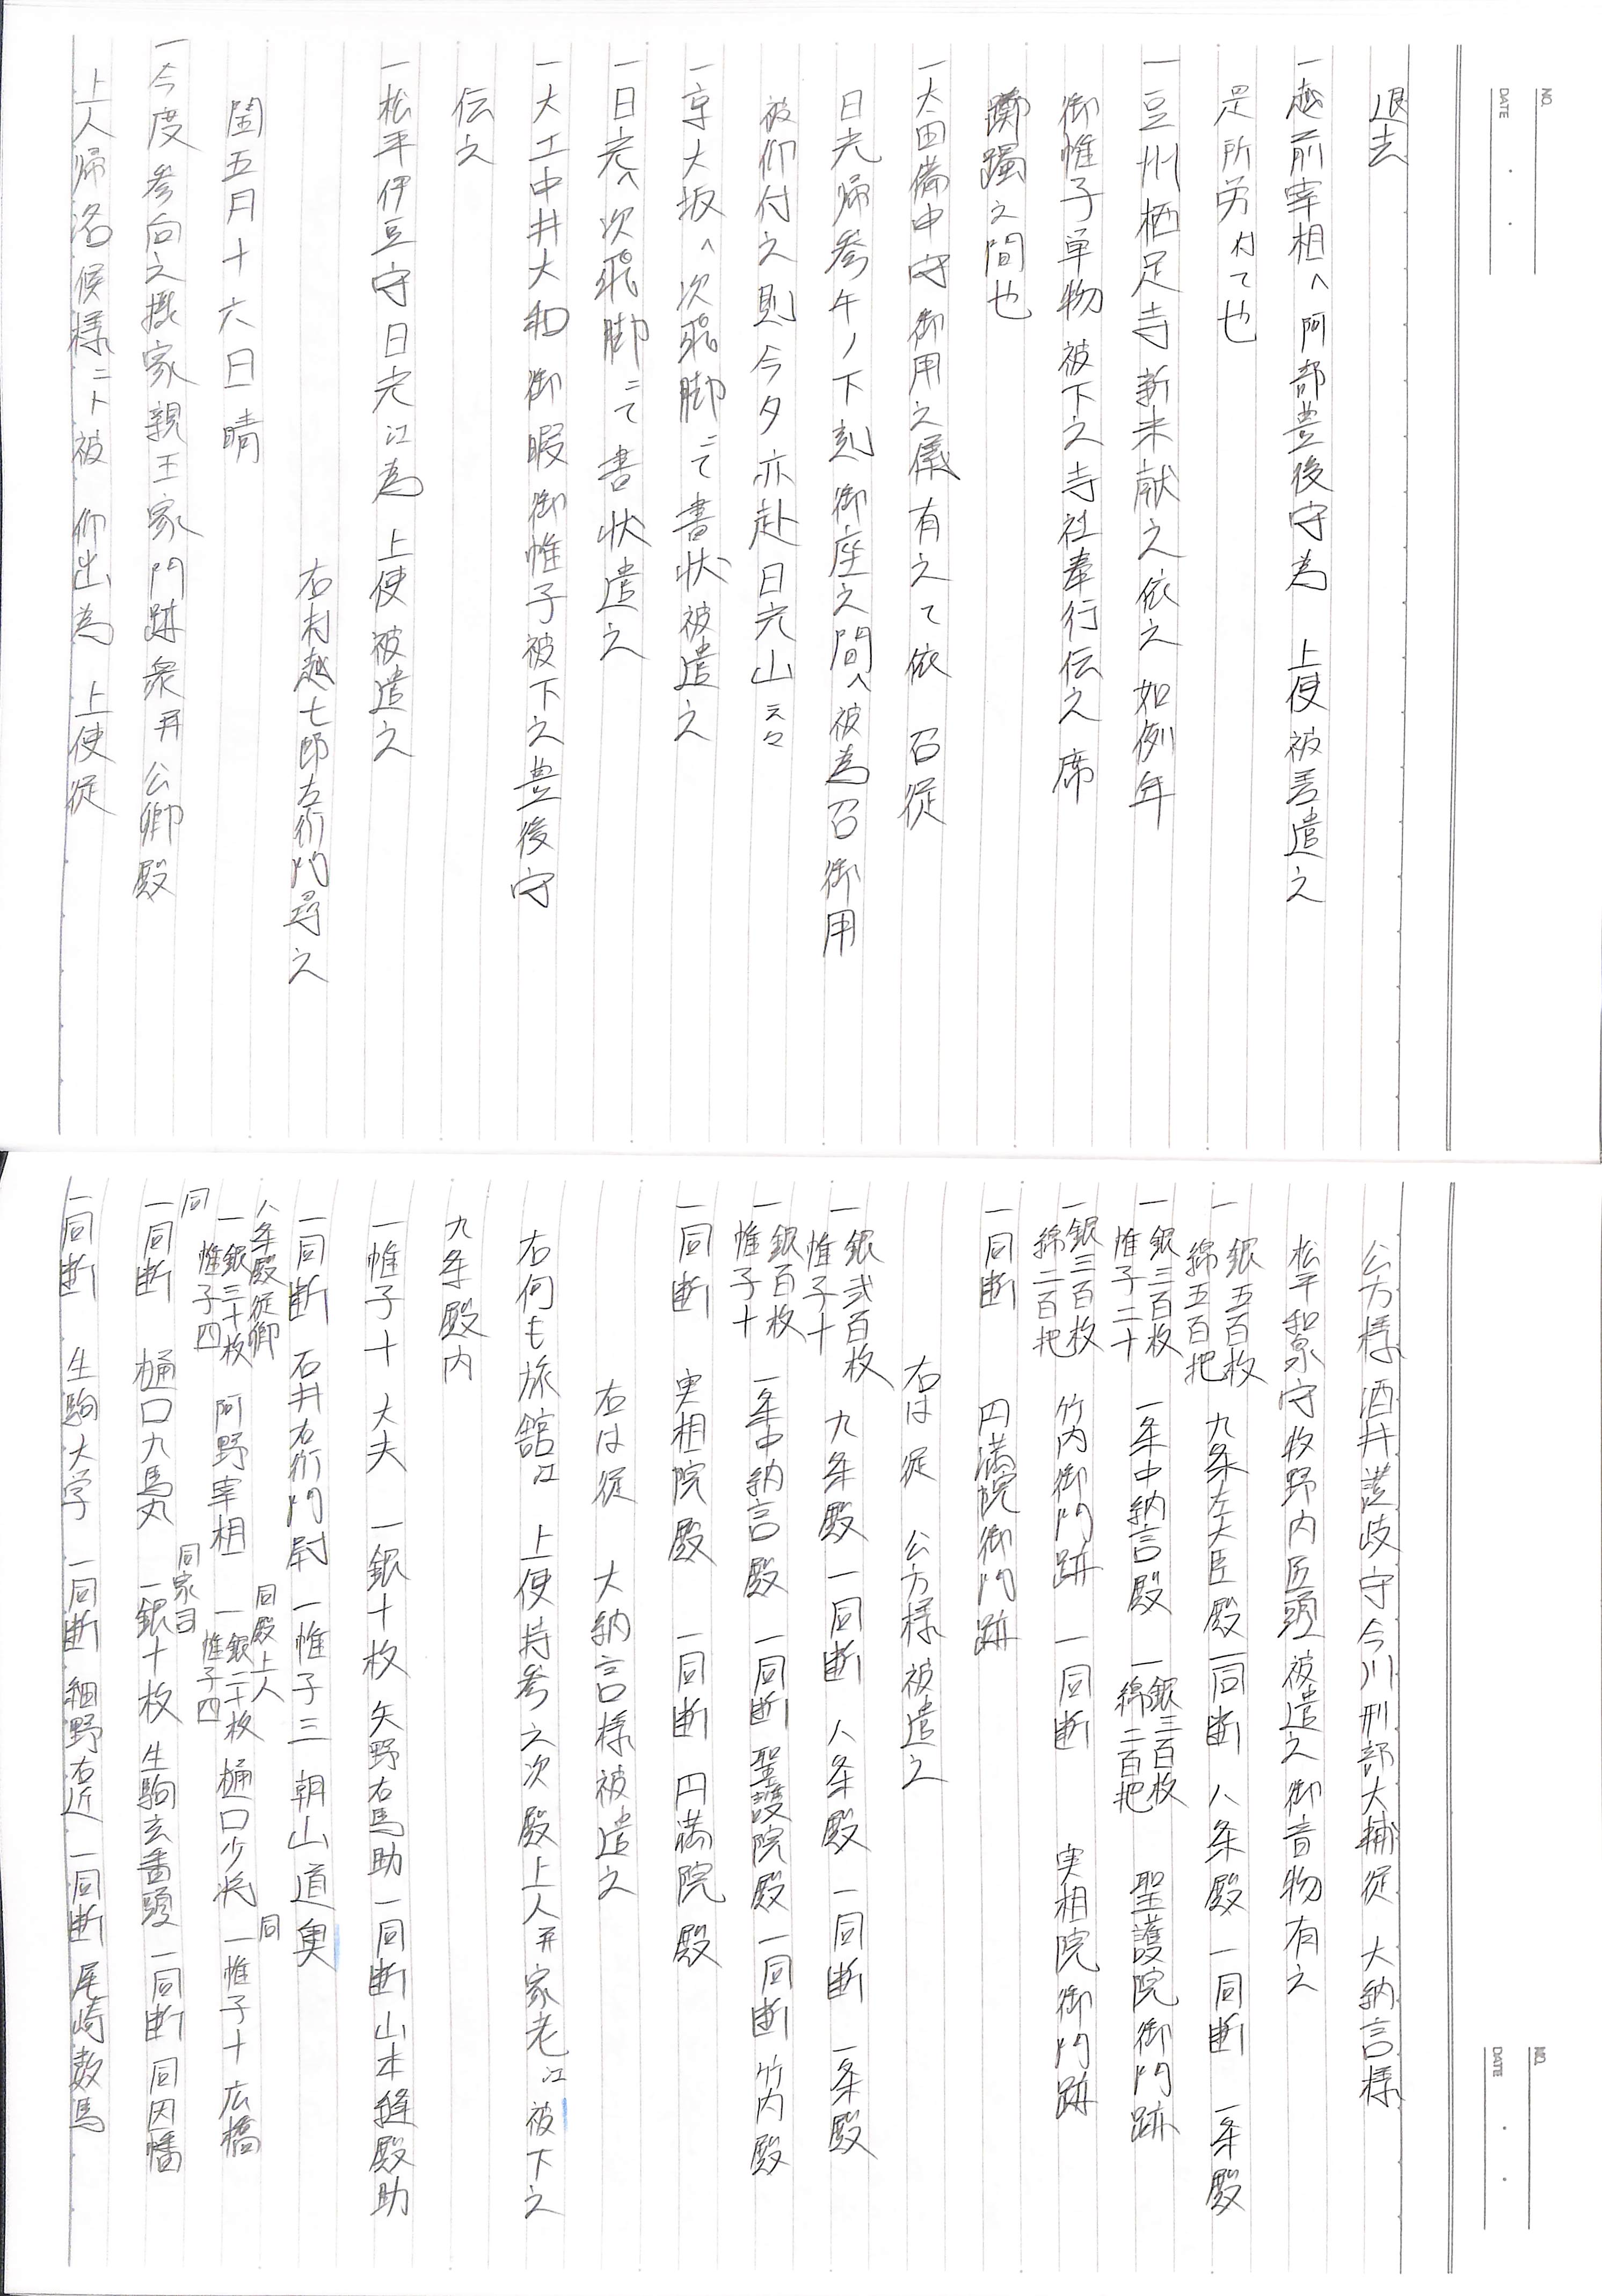 NO.
DATE
退去
一越前宰相へ阿部豊後守為 上使被差遣之
是所労付て也
一豆州栖足寺新米献之依之如例年
御帷子単物被下之寺社奉行伝之席
躑躅之間也
一太田備中守御用之儀有之て依 召従
日光帰参午ノ下刻御座之間へ被為召御用
被仰付之則今夕亦赴日光山云々
一京大坂へ次飛脚ニて書状被遣之
一日光へ次飛脚ニて書状遣之
一大工中井大和御暇御帷子被下之豊後守
伝之
一松平伊豆守日光江為 上使被遣之
右村越七郎左衛門尋之
閏五月十六日晴
一今度参向之摂家親王家門跡衆并公卿殿
上人帰洛候様ニト被 仰出為 上使従
NO.
DATE
公方様酒井讃岐守今川刑部大輔従 大納言様
松平和泉守牧野内匠頭被遣之御音物有之
一銀五百枚 綿五百把 九条左大臣殿 一同断 八条殿 一同断 一条殿
一銀三百枚 帷子二十 一条中納言殿 一銀三百枚 綿二百把 聖護院御門跡
一銀三百枚 綿二百把 竹内御門跡 一同断 実相院御門跡
一同断 円満院御門跡
右は従 公方様被遣之
一銀弐百枚 帷子十 九条殿 一同断 八条殿 一同断 一条殿
一銀百枚 帷子十 一条中納言殿 一同断 聖護院殿 一同断 竹内殿
一同断 実相院殿 一同断 円満院殿
右は従 大納言様被遣之
右何も旅舘江 上使持参之次殿上人并家老江被下之
九条殿内
一帷子十 大夫 一銀十枚 矢野右馬助 一同断 山本縫殿助
一同断 石井右衛門尉 一帷子三 朝山道奥
八条殿従卿 一銀三十枚 帷子四 阿野宰相 同殿上人 一銀二十枚 帷子四 樋口少将 同 一帷子十 広橋
同 一同断 樋口九馬丸 同家司 一銀十枚 生駒玄蕃頭 一同断 同因幡
一同断 生駒大学 一同断 細野右近 一同断 尾崎数馬